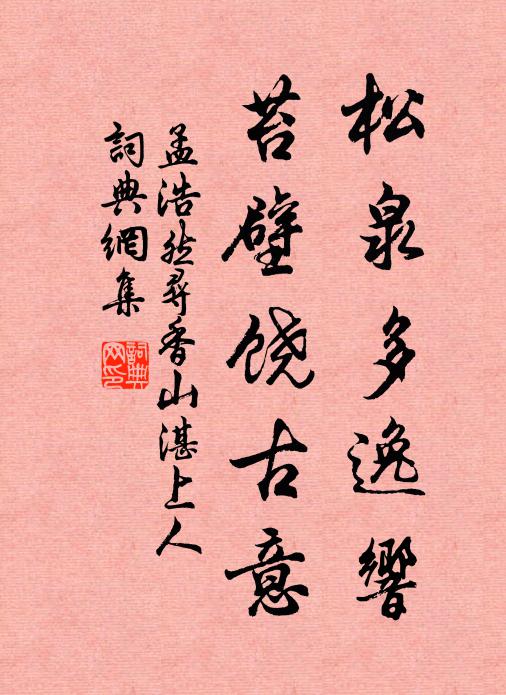 松泉多逸響
苔壁饶古意
孟浩然尋香山湛上人
詞典網集
詞典网印